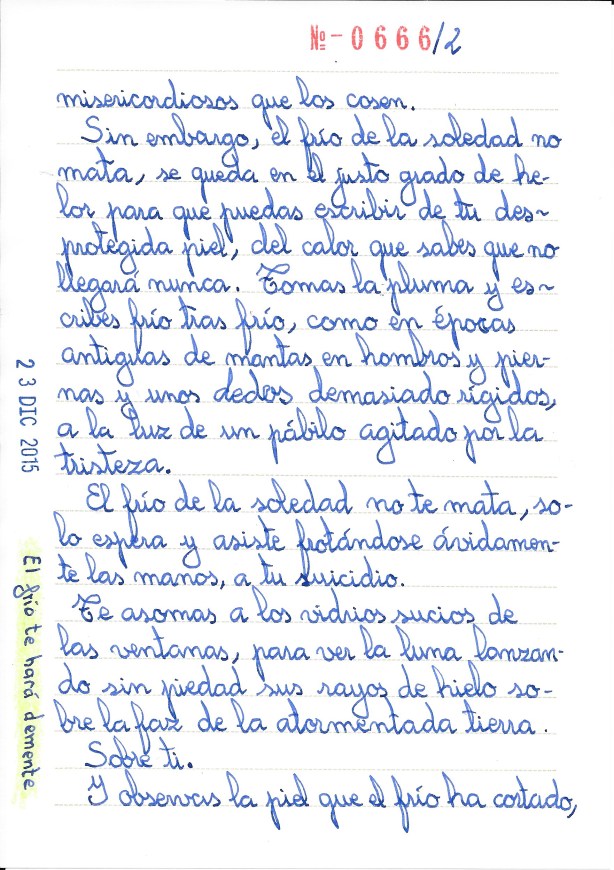 Nº - 0666/2
misericordiosos que los cosen.
Sin embargo, el frío de la soledad no
mata, se queda en el justo grado de he-
lor para que puedas escribir de tu des~
protegida piel, del calor que sabes que no
llegará nunca. Tomas la pluma y es~
cribes frío tras frío, como en épocas
antiguas de mantas en hombros y pier-
nas y unos dedos demasiado rígidos,
a la luz de un pábilo agitado por la
tristeza.
El frío de la soledad no te mata, so-
lo espera y asiste frotándose ávidamen-
te las manos, a tu suicidio.
Te asomas a los vidrios sucios de
las ventanas, para ver la luna lanzan-
do sin piedad sus rayos de hielo so-
bre la faz de la atormentada tierra.
Sobre ti.
Y observas la piel que el frío ha cortado,
23 DIC 2015
El frío te hará demente